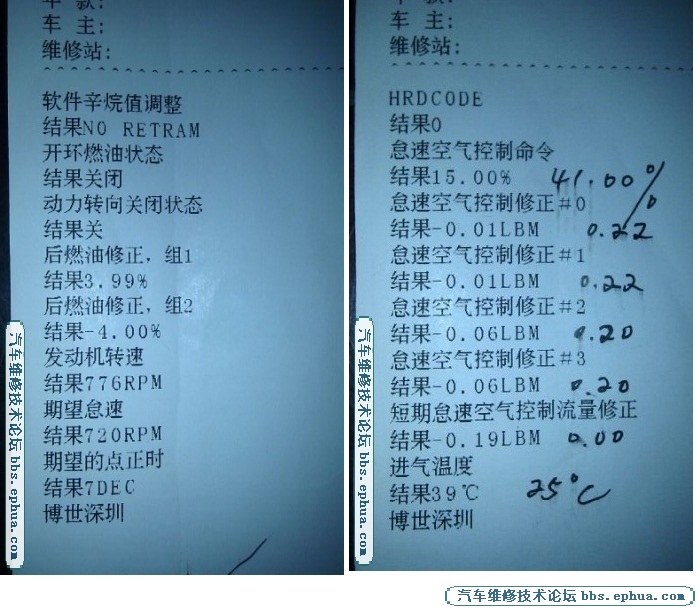 车 款:
车 主:
维修站:
软件辛烷值调整
结果NO RETRAM
开环燃油状态
结果关闭
动力转向关闭状态
结果关
后燃油修正, 组1
结果3.99%
后燃油修正, 组2
结果-4.00%
发动机转速
结果776RPM
期望怠速
结果720RPM
期望的点正时
结果7DEC
博世深圳
汽车维修技术论坛 bbs.ephua.com
车 款:
车 主:
维修站:
HRDCODE
结果0
怠速空气控制命令
结果15.00% 41.00%
怠速空气控制修正#0
结果-0.01LBM 0.22
怠速空气控制修正#1
结果-0.01LBM 0.22
怠速空气控制修正#2
结果-0.06LBM 0.20
怠速空气控制修正#3
结果-0.06LBM 0.20
短期怠速空气控制流量修正
结果-0.19LBM 0.00
进气温度
结果39℃ 25℃
博世深圳
汽车维修技术论坛 bbs.ephua.com
汽车维修技术论坛 bbs.ephua.com